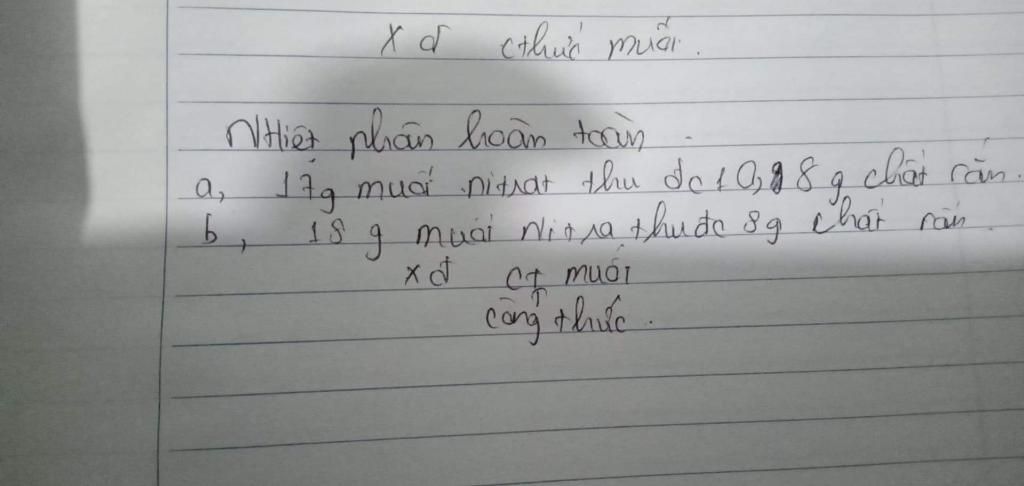 xđ cthức muối.
Nhiệt phân hoàn toàn
a, 17g muối nitrat thu đc 10,8g chất rắn.
b, 18 g muối Nitra thu đc 8g chất rắn.
xđ CT muối
công thức.